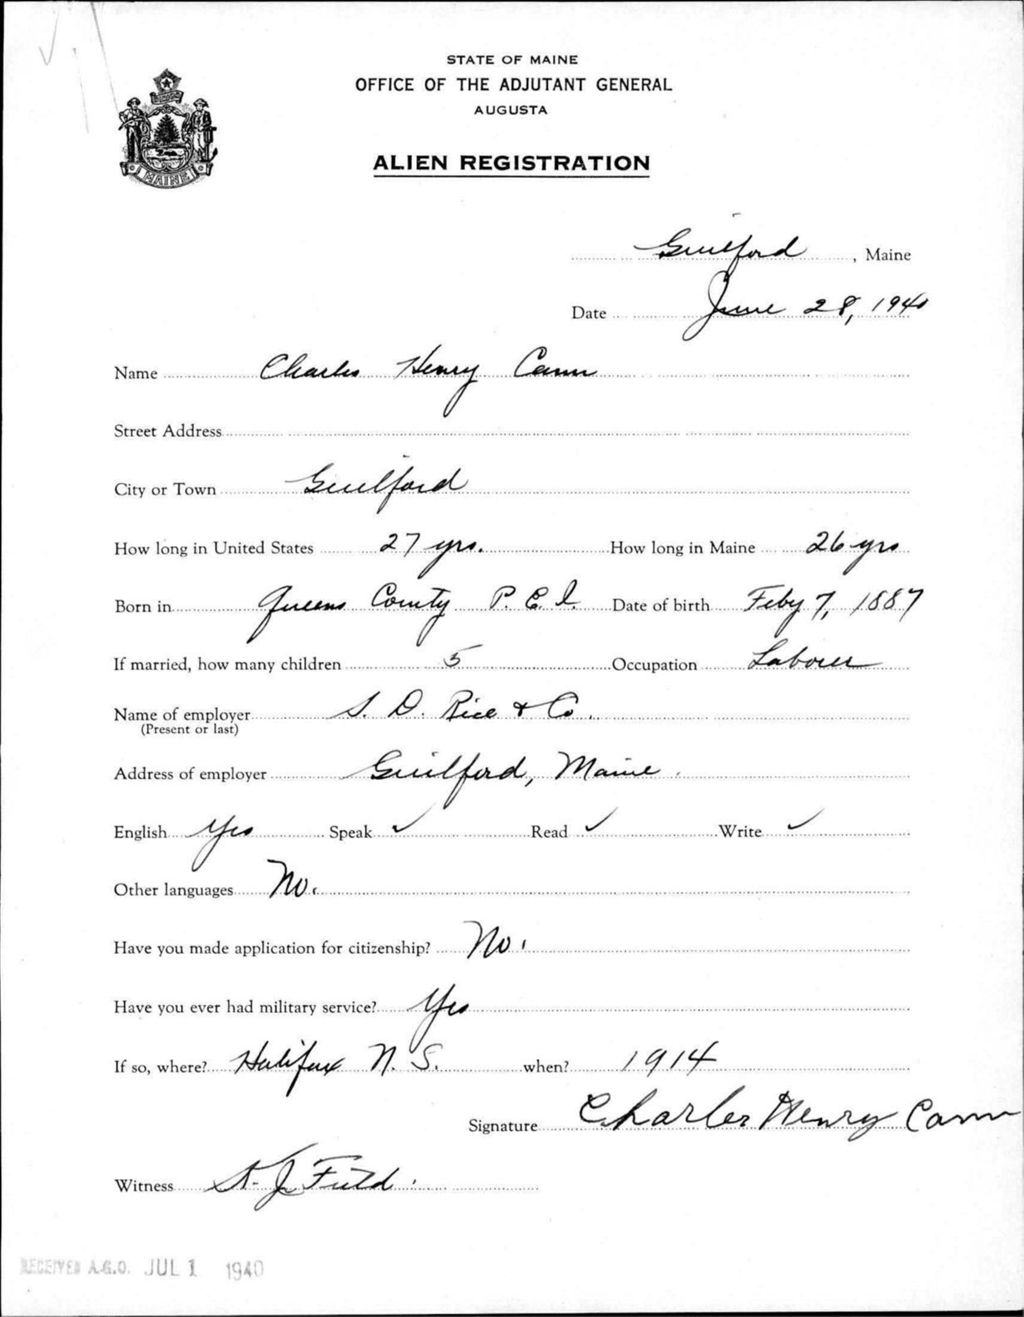 STATE OF MAINE
OFFICE OF THE ADJUTANT GENERAL
AUGUSTA
ALIEN REGISTRATION
MAINE
Guilford, Maine
Date June 28, 1940
Name Charles Henry Cann
Street Address
City or Town Guilford
How long in United States 27 yrs. How long in Maine 26 yrs
Born in Queens County P. E. I. Date of birth Feby 7, 1887
If married, how many children 5 Occupation Laborer
Name of employer S. D. Rice & Co.
(Present or last)
Address of employer Guilford, Maine.
English Yes Speak ✓ Read ✓ Write ✓
Other languages No.
Have you made application for citizenship? No.
Have you ever had military service? Yes
If so, where? Halifax N. S. when? 1914
Signature Charles Henry Cann
Witness J Field.
RECEIVED A.G.O. JUL 1 1940